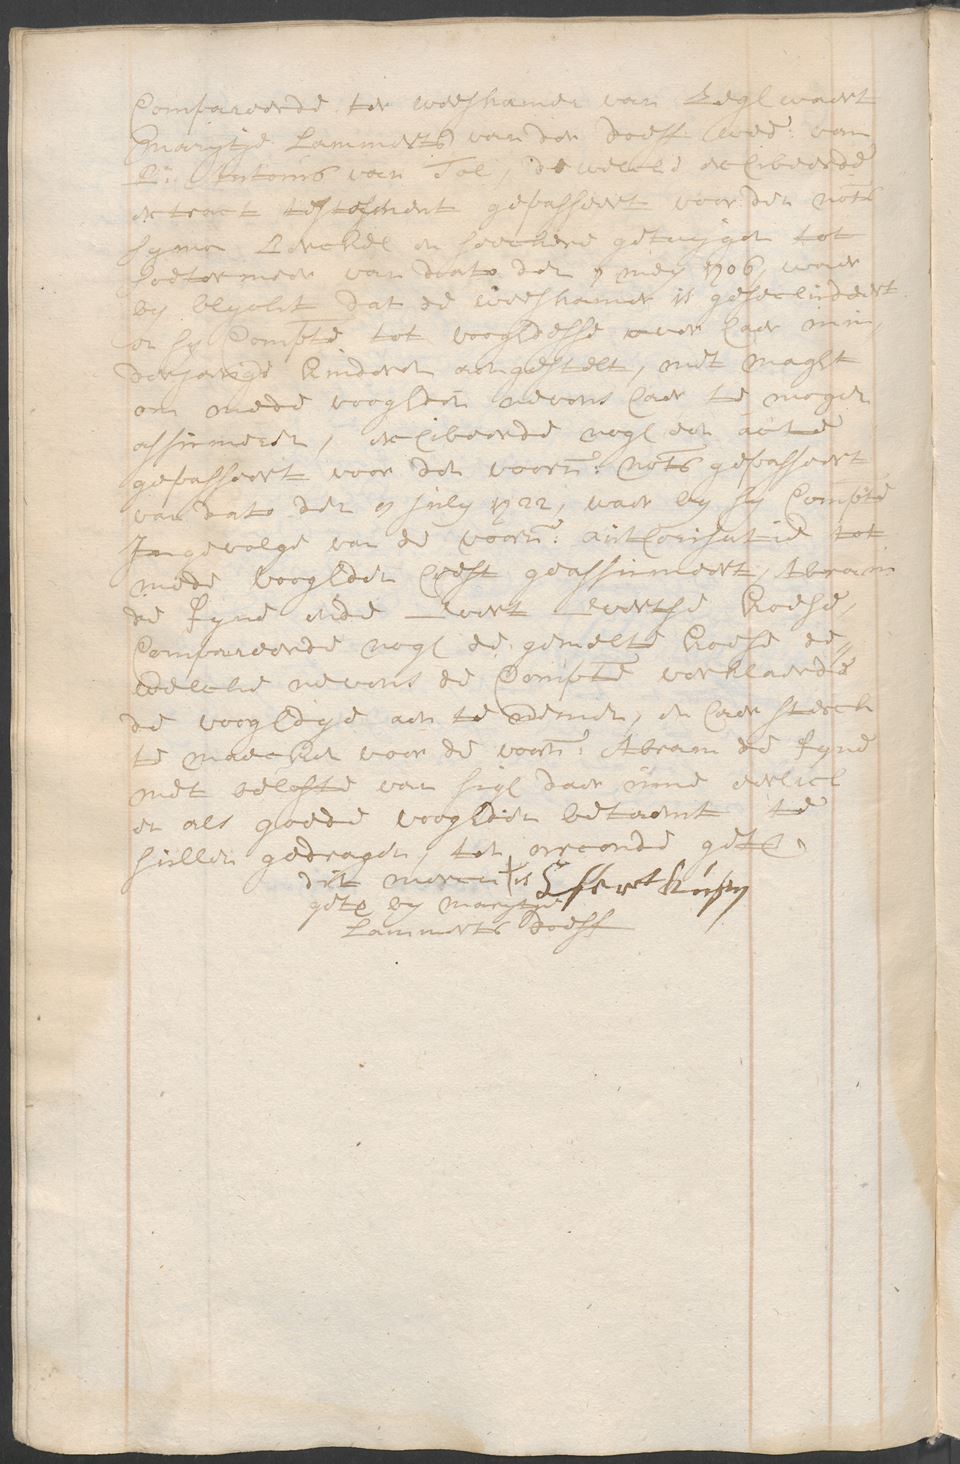 Compareerde ter weeshamer van Zegwaert
Marijtje Lammerts van der Doeff wed: van
Antonis van Tol, dewelcke exibeerde
extract testement gepasseert voor den Nots
Symon en seeckere getuijgen tot
Soetermeer van dato den 9 meij 1706, waer
by blyckt dat de weeshamer is gesecludeert
en sy Compte tot vooghdesse over haer min„
derjarige kinderen aengestelt, met maght
om mede vooghden nevens haer te mogen
assumeren, exibeerde nogh een acte
gepasseert voor den voorn: Nots gepasseert
van dato den 9 july 1722, waer by sy Compte
In gevolge van de voorn: authorisatie tot
mede vooghden heeft geassumeert, Abram
de Fyne ende Evert Evertse Koese,
Compareerde nogh de gemelte Koese de„
welcke nevens de Compte verklaerde
de vooghdye aen te nemen, en haer sterck
te maecken voor de voorn: Abram de Fyne
met belofte van sigh daer inne eerlick
en als goede vooghden betaemt te
sullen gedragen, ten oirconde get:
dit merck + is Effert
get: by Marijtie
Lammerts Doeff